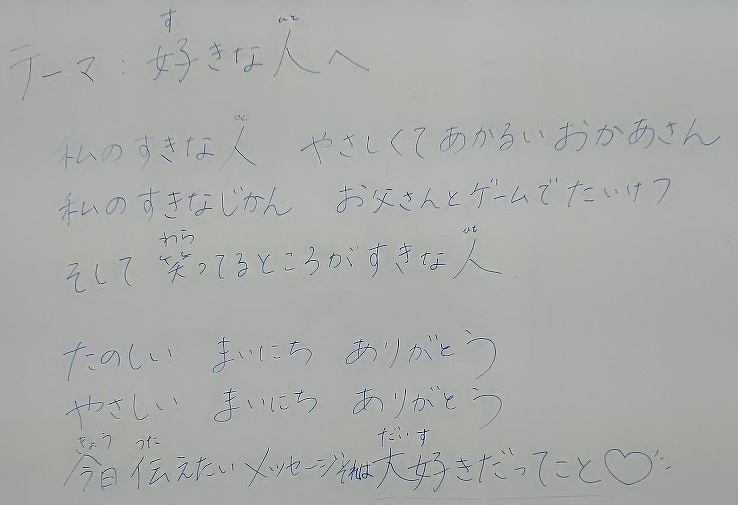 テーマ：好きな人へ
私のすきな人　やさしくてあかるいおかあさん
私のすきなじかん　お父さんとゲームでたいけつ
そして笑ってるところがすきな人
たのしい　まいにち　ありがとう
やさしい　まいにち　ありがとう
今日伝えたいメッセージそれは大好きだってこと♡